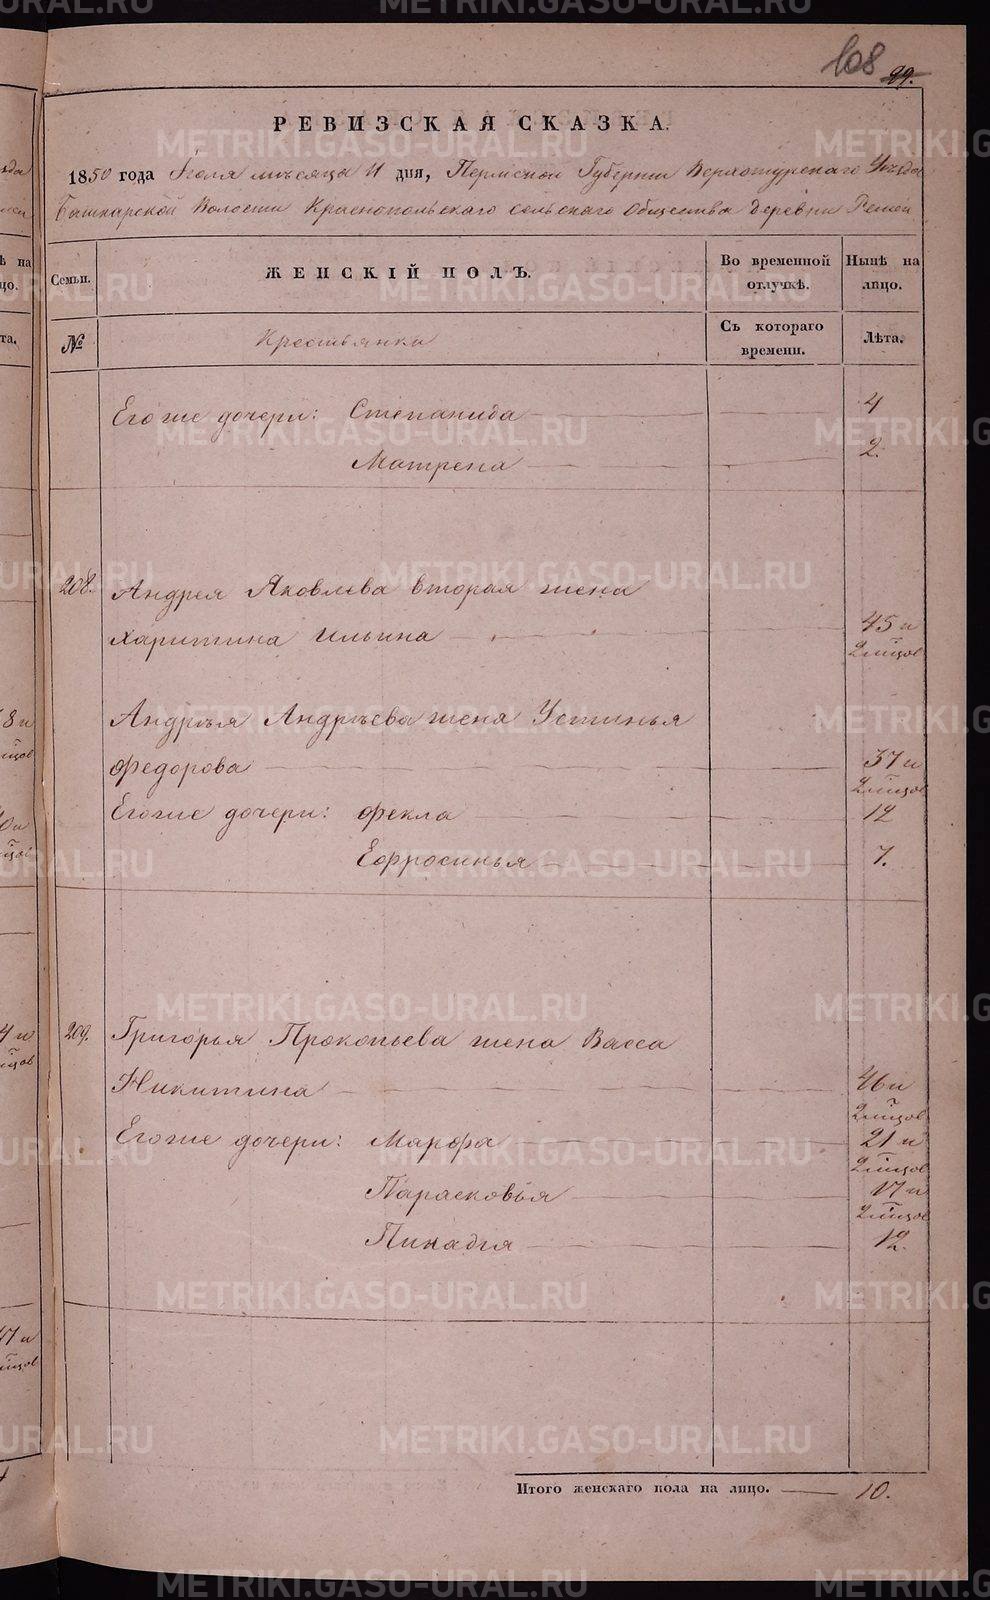 108
99.
РЕВИЗСКАЯ СКАЗКА.
1850 года Іюля мѣсяца 11 дня, Пермской Губерніи Верхотурскаго Уѣзда
Башкарской Волости Краснопольскаго сельскаго Общества Деревни
Семьи.
ЖЕНСКІЙ ПОЛЪ.
Во временной отлучкѣ.
Нынѣ на лицо.
№
Крестьянки
Съ котораго времени.
Лѣта.
Его же дочери: Степанида 4
Матрена 2.
208. Андрея Яковлева вторая жена
Харитина Ильина 45 и
2 мѣсяцов
Андрѣя Андрѣева жена Устинья
Федорова 37 и
2 мѣсяцов
Его же дочери: Фекла 12
Ефросинья 7.
209. Григорья Прокопьева жена Васса
Никитина 46 и
2 мѣсяцов
Его же дочери: Марфа 21 и
2 мѣсяцов
Парасковья 17 и
2 мѣсяцов
Пинадія 12.
Итого женскаго пола на лицо. 10.
METRIKI.GASO-URAL.RU